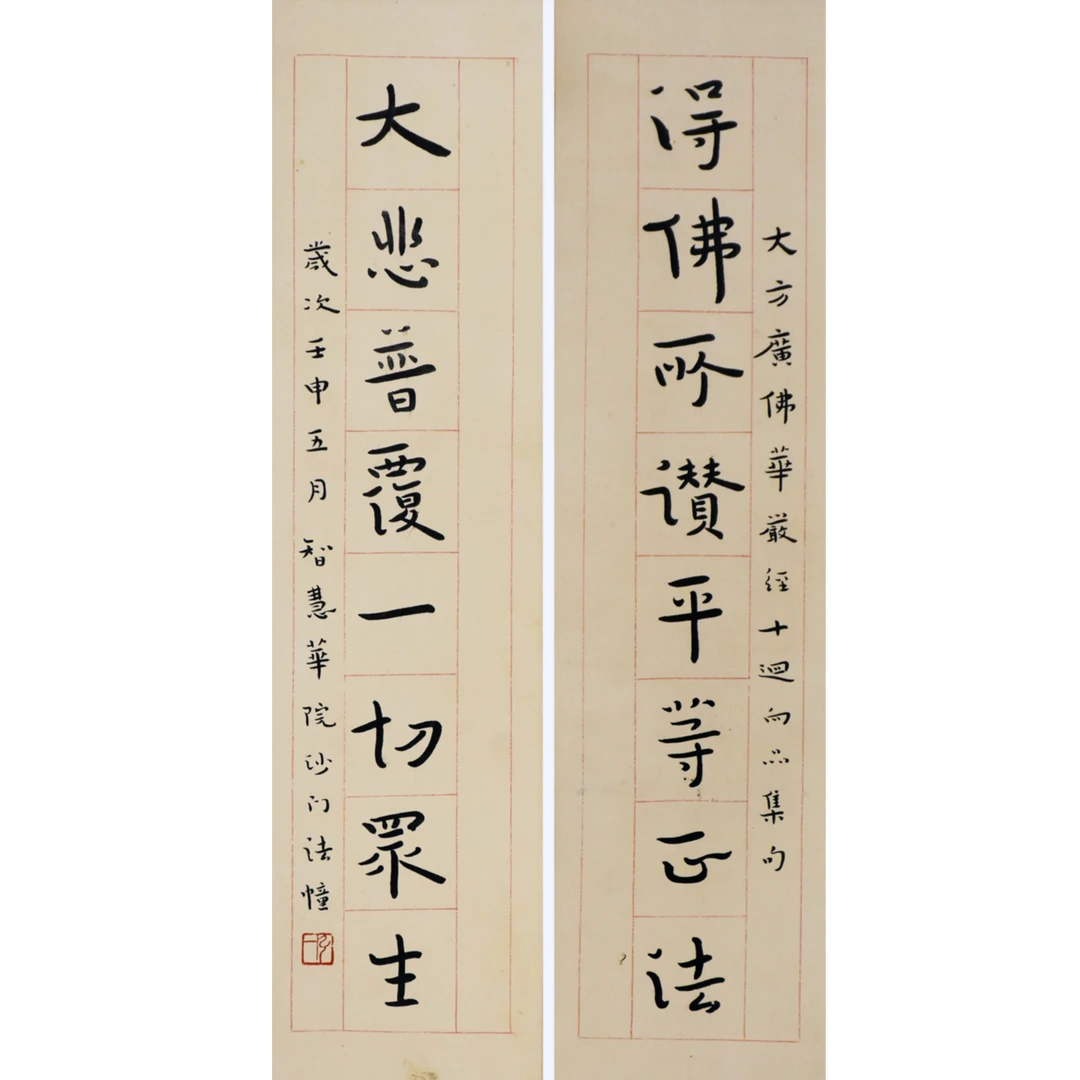 大方廣佛華嚴經十迴向品集句
得佛所讚平等正法
大悲普覆一切眾生
歲次壬申五月智慧華院沙门法幢